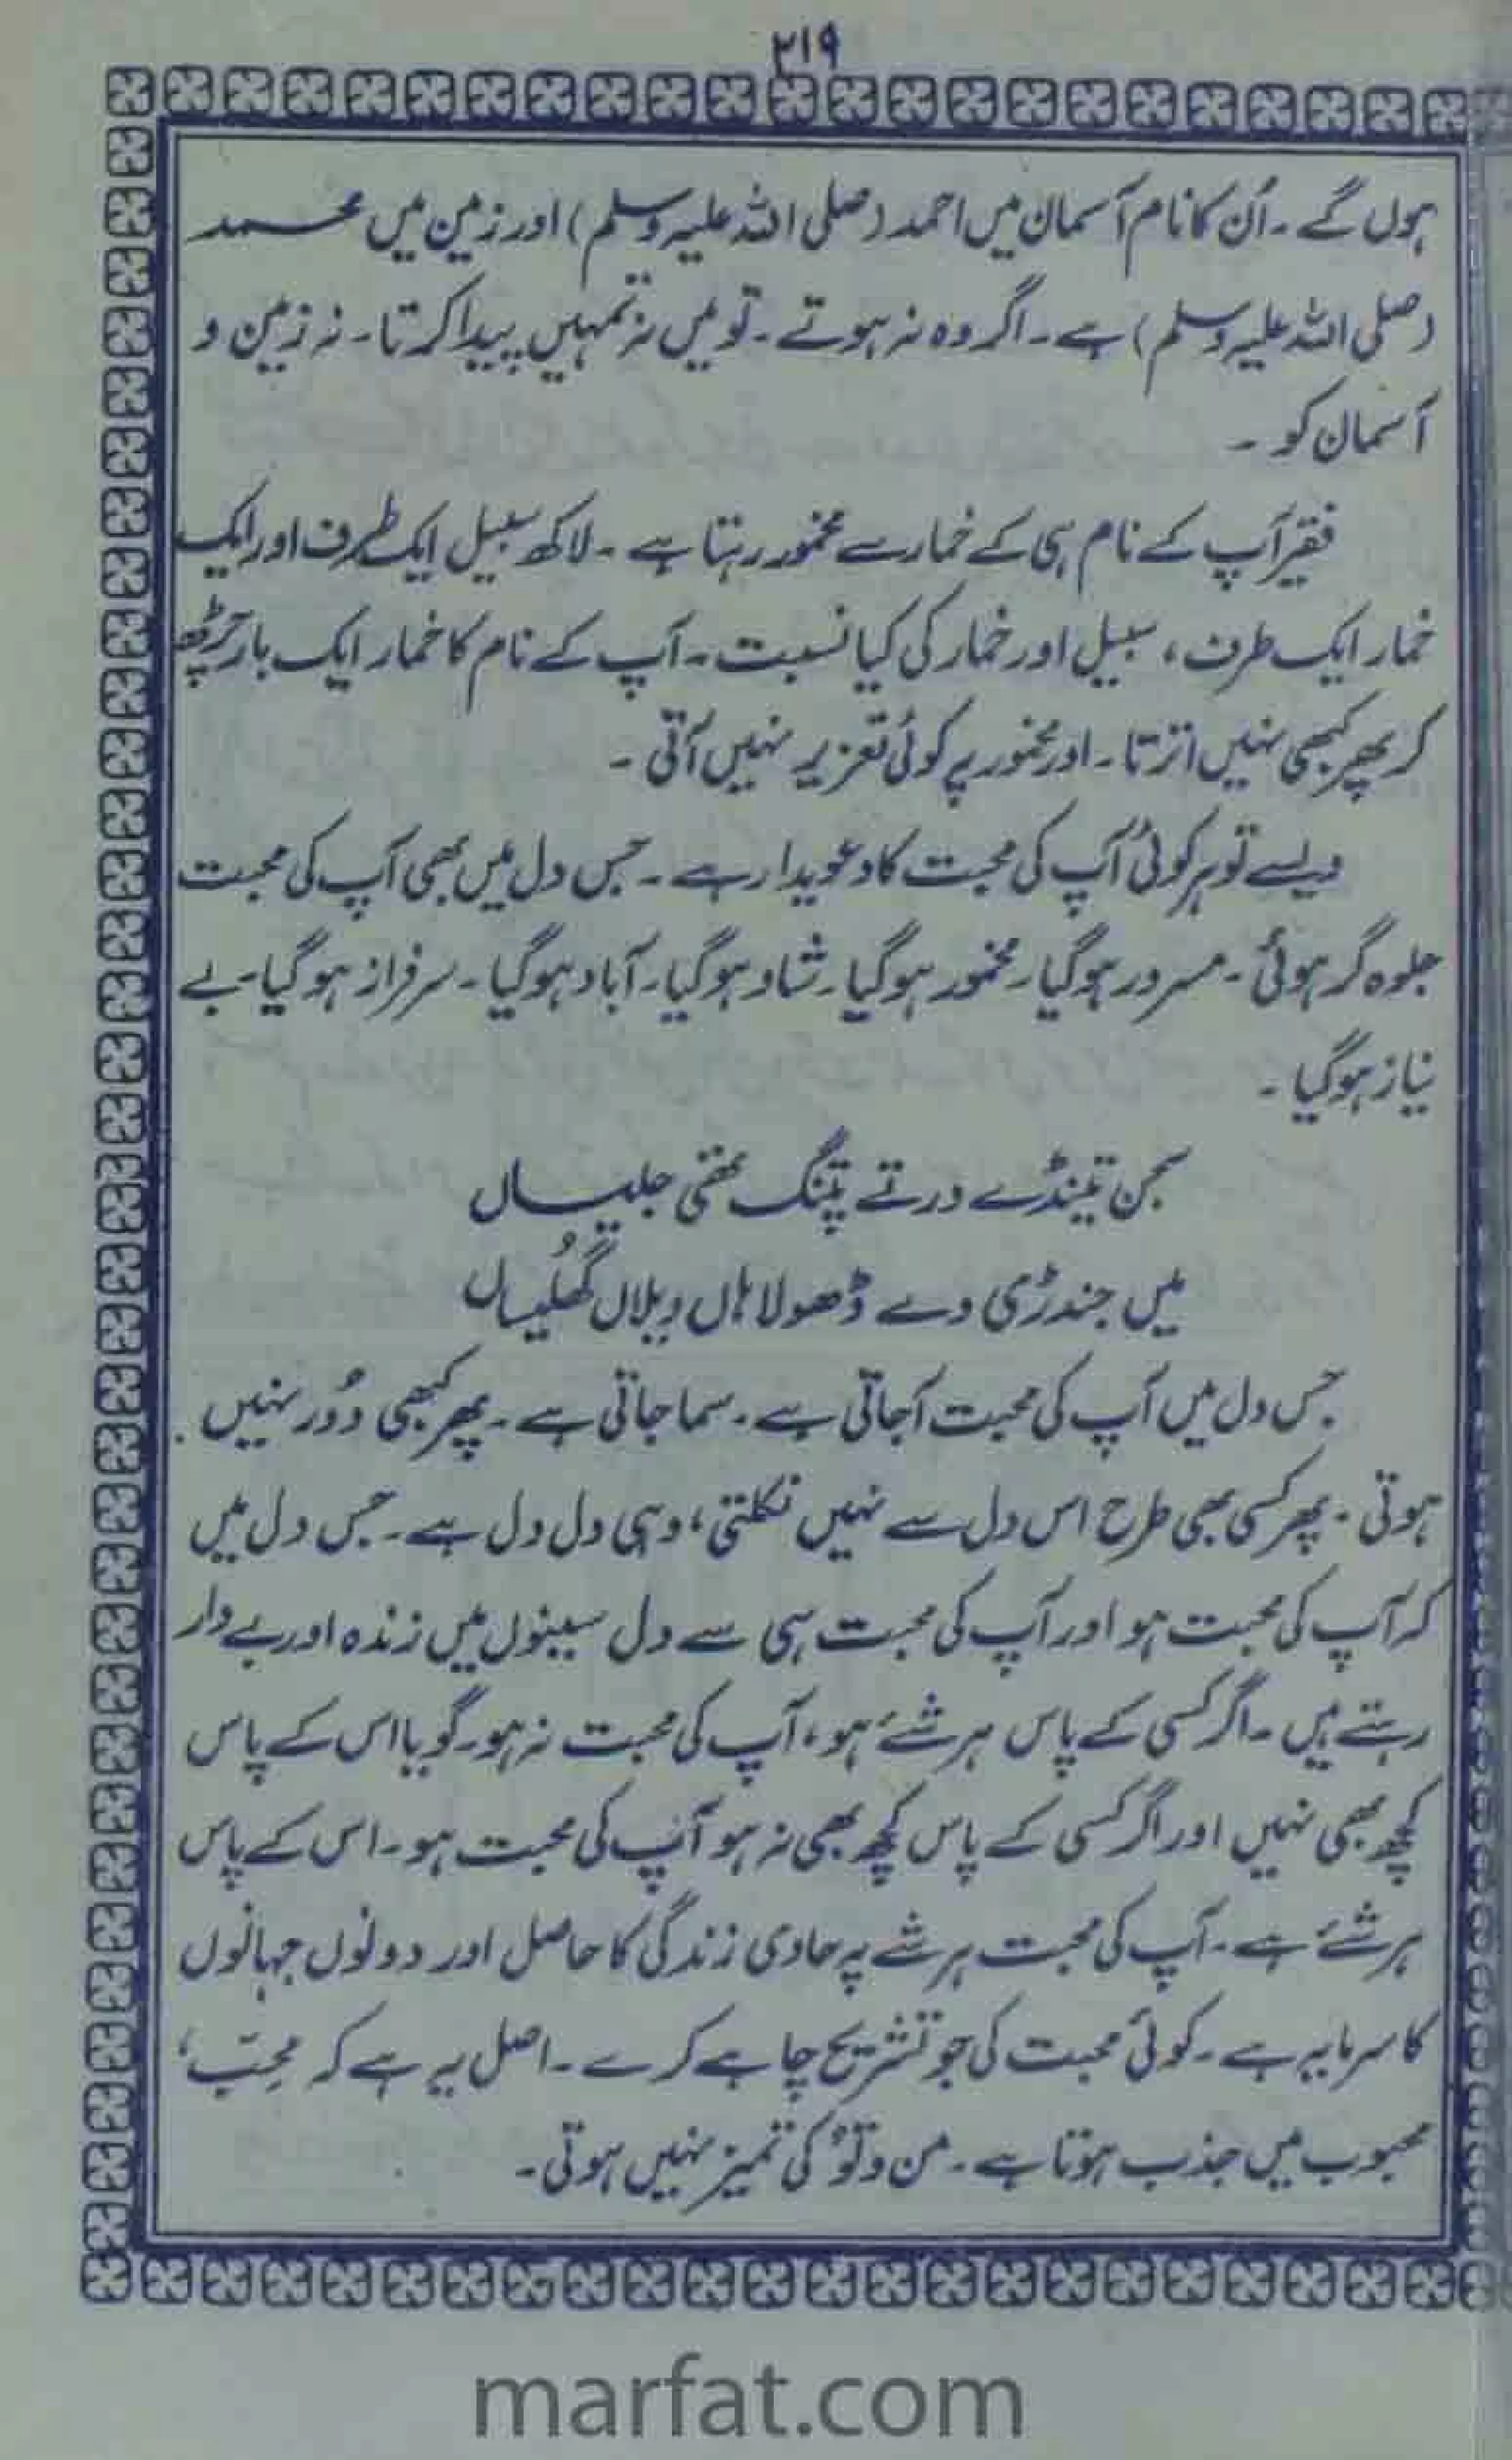 ۲۱۹
ہوں گے ۔ اُن کا نام آسمان میں احمد (صلی اللہ علیہ وسلم) اور زمین میں محمد
(صلی اللہ علیہ وسلم) ہے ۔ اگر وہ نہ ہوتے ۔ تو میں نہ تمہیں پیدا کرتا ۔ نہ زمین و
آسمان کو ۔
فقیر آپ کے نام ہی کے خمار سے مخمور رہتا ہے ۔ لاکھ سبیل ایک طرف اور ایک
خمار ایک طرف ، سبیل اور خمار کی کیا نسبت ۔ آپ کے نام کا خمار ایک بار چڑھ
کر پھر کبھی نہیں اترتا ۔ اور مخمور پر کوئی تعزیر نہیں آتی ۔
ویسے تو ہر کوئی آپ کی محبت کا دعویدار ہے ۔ جس دل میں بھی آپ کی محبت
جلوہ گر ہوئی ۔ مسرور ہو گیا ۔ مخمور ہو گیا ۔ شاد ہو گیا ۔ آباد ہو گیا ۔ سرفراز ہو گیا ۔ بے
نیاز ہو گیا ۔
سجن تینڈے در تے پتنگ تھی جلیساں
میں جندڑی دے ڈھولا ہاں ویلاں گھلیساں
جس دل میں آپ کی محبت آجاتی ہے ۔ سما جاتی ہے ۔ پھر کبھی دُور نہیں
ہوتی ۔ پھر کسی بھی طرح اس دل سے نہیں نکلتی ، وہی دل دل ہے ۔ جس دل میں
کہ آپ کی محبت ہو اور آپ کی محبت ہی سے دل سینوں میں زندہ اور بے دار
رہتے ہیں ۔ اگر کسی کے پاس ہر شئے ہو ، آپ کی محبت نہ ہو ۔ گویا اس کے پاس
کچھ بھی نہیں اور اگر کسی کے پاس کچھ بھی نہ ہو آپ کی محبت ہو ۔ اس کے پاس
ہر شئے ہے ۔ آپ کی محبت ہر شے پہ حاوی زندگی کا حاصل اور دونوں جہانوں
کا سرمایہ ہے ۔ کوئی محبت کی جو تشریح چاہے کرے ۔ اصل یہ ہے کہ محبّ ،
محبوب میں جذب ہوتا ہے ۔ من و تُو کی تمیز نہیں ہوتی ۔
marfat.com